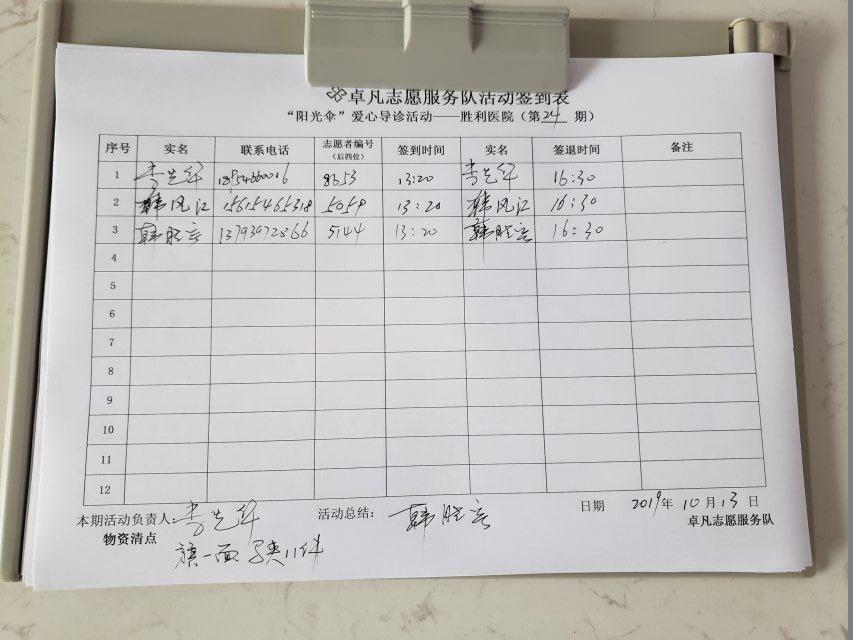 卓凡志愿服务队活动签到表
“阳光伞”爱心导诊活动——胜利医院（第24期）
序号 实名 联系电话 志愿者编号（后四位） 签到时间 实名 签退时间 备注
1 李先行 8353 13:20 李先行 16:30
2 韩风江 15615465318 5059 13:20 韩风江 16:30
3 韩胜亮 13793972866 5144 13:20 韩胜亮 16:30
4
5
6
7
8
9
10
11
12
本期活动负责人 李先行 活动总结： 韩胜亮 日期 2019年10月13日
物资清点 卓凡志愿服务队
旗一面 11件